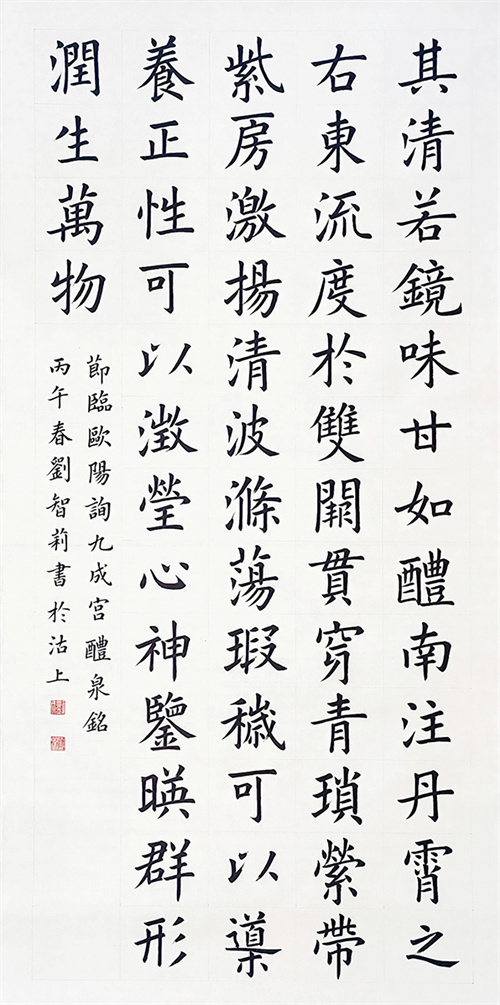 其清若鏡味甘如醴南注丹霄之
右東流度於雙闕貫穿青瑣縈帶
紫房激揚清波滌蕩瑕穢可以導
養正性可以澂瑩心神鑒暎群形
潤生萬物
節臨歐陽詢九成宮醴泉銘
丙午春劉智莉書於沽上